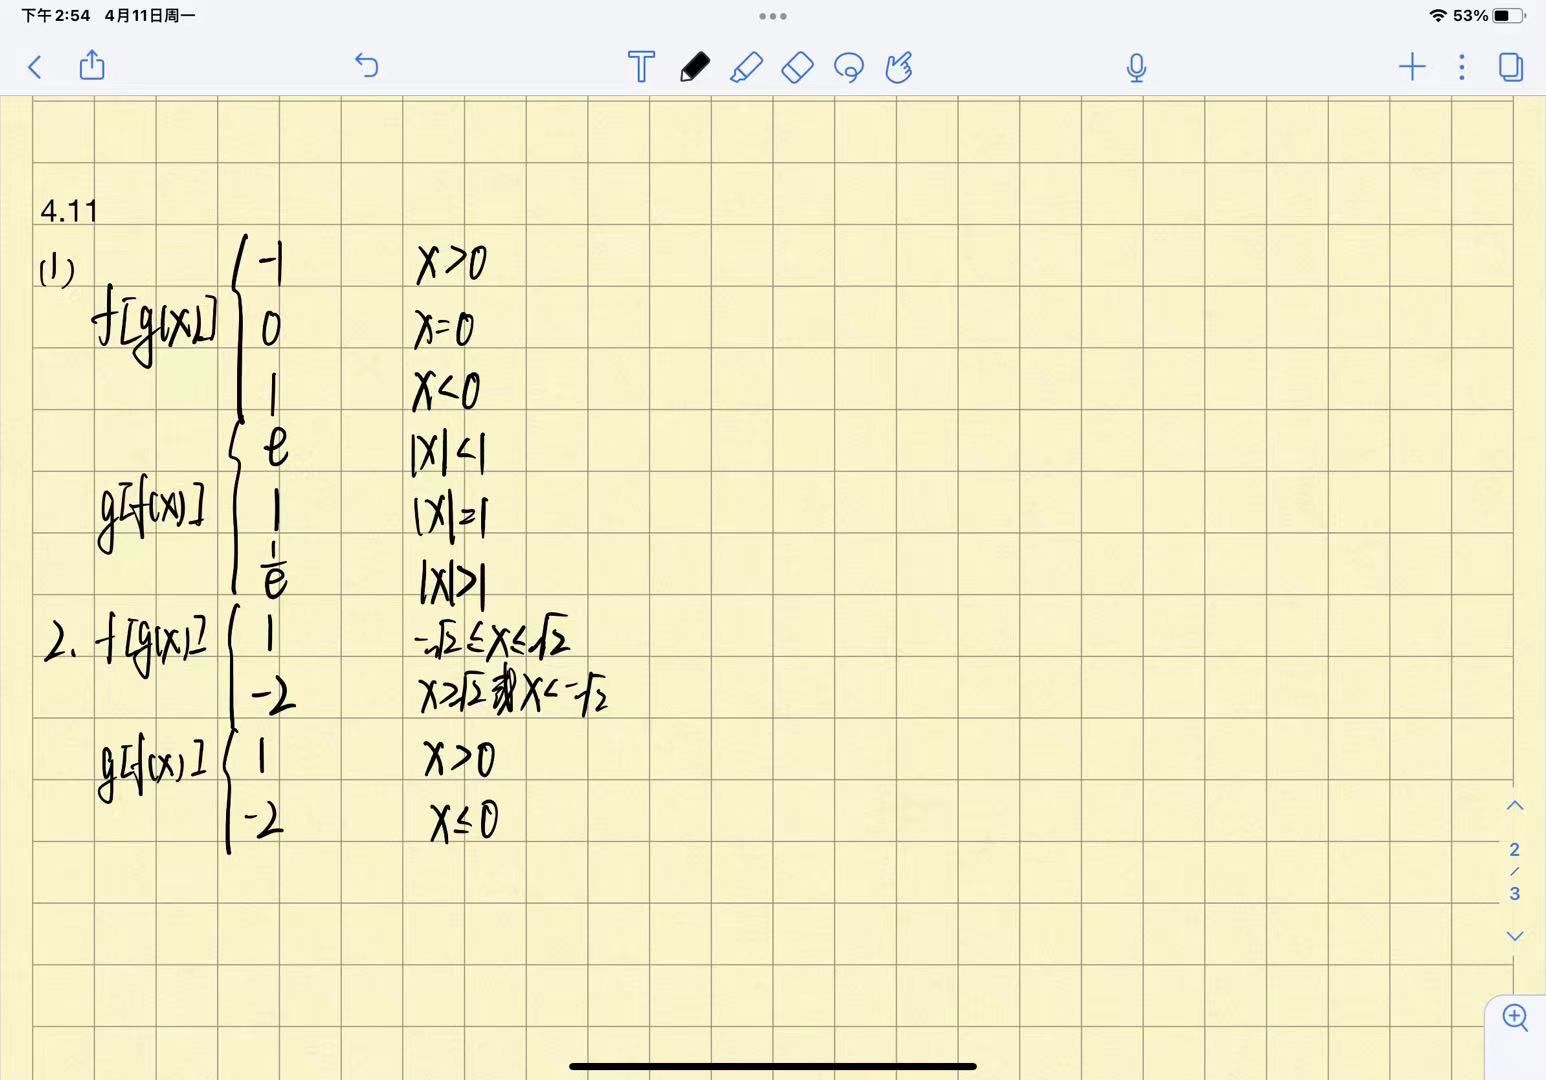 下午2:54 4月11日周一
53%
4.11
(1)
f[g(x)] { -1 x>0
0 x=0
1 x<0
g[f(x)] { e |x|<1
1 |x|=1
1/e |x|>1
2. f[g(x)] { 1 -√2≤x≤√2
-2 x>√2或x<-√2
g[f(x)] { 1 x>0
-2 x≤0
2
/
3